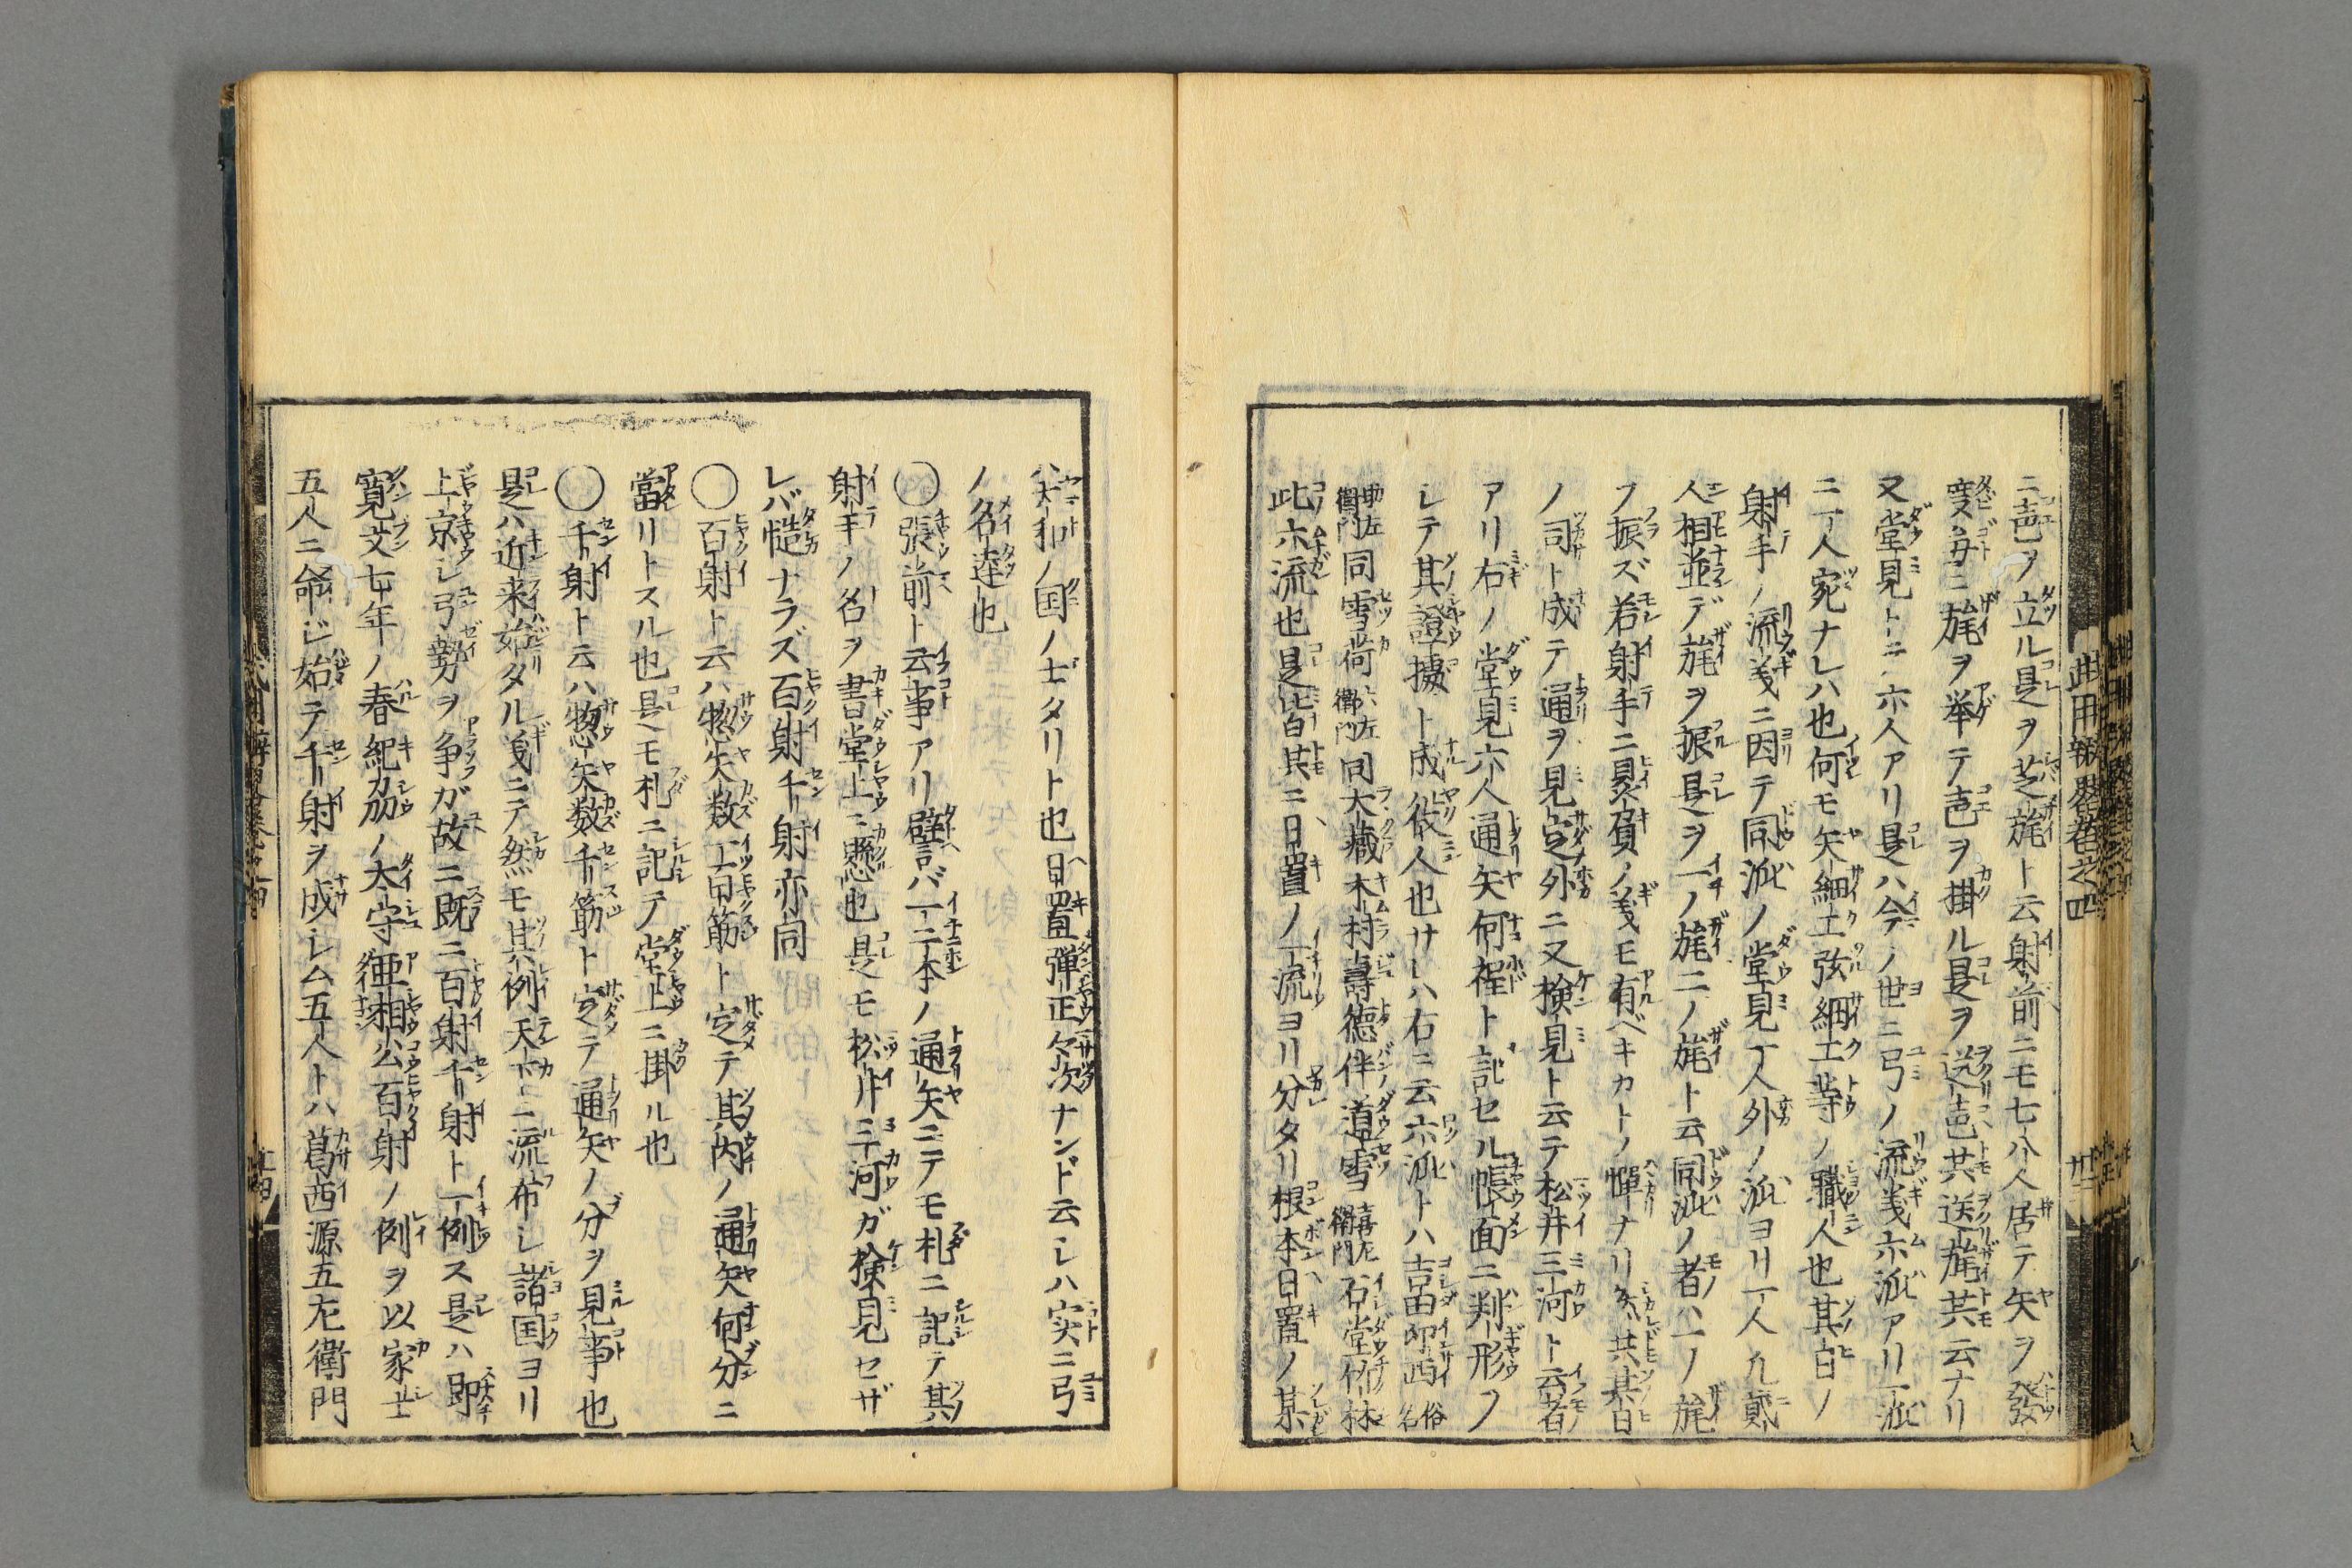 ニ声ヲ立ル是ヲ芝旄ト云射前ニモ七八人居テ矢ヲ發
度毎ニ旄ヲ挙テ声ヲ掛ル是ヲ送声共送旄共云ナリ
又堂見トニ六人アリ是ハ今ノ世ニ弓ノ流義六派アリ一派
ニ一人宛ナレハ也何モ矢細工弦細工等ノ職人也其日ノ
射手ノ流義ニ因テ同派ノ堂見一人外ノ派ヨリ一人凡貳
人相並デ旄ヲ振是ヲ一ノ旄二ノ旄ト云同派ノ者ハ一ノ旄
ヲ振ズ若射手ニ贔負ノ義モ有ベキカトノ憚ナリ然共其日
ノ司ト成テ通ヲ見定外ニ又検見ト云テ松井三河ト云者
アリ右ノ堂見六人通矢何程ト記セル帳面ニ判形ヲ
シテ其證據ト成役人也サレハ右ニ云六派トハ吉田印西俗名
助左衛門同雪荷六左衛門同大蔵木村壽徳伴道雪喜左衛門石堂竹林
此六流也是皆共ニ日置ノ一流ヨリ分タリ根本日置ノ某
ハ大和ノ国ノ士タリト也日置彈正欠次ナンド云シハ実ニ弓
ノ名達也
〇張前ト云事アリ譬バ一二本ノ通矢ニテモ札ニ記テ其
射手ノ名ヲ書堂上ニ懸也是モ松井三河ガ検見セザ
レバ慥ナラズ百射千射亦同
〇百射ト云ハ惣矢数五百筋ト定テ其内ノ通矢何分ニ
當リトスル也是モ札ニ記テ堂上ニ掛ル也
〇千射ト云ハ惣矢数千筋ト定テ通矢ノ分ヲ見事也
是ハ近来始タル義ニテ然モ其例天下ニ流布シ諸国ヨリ
上京シ弓勢ヲ争ガ故ニ既ニ百射千射ト一例ス是ハ即
寛文七年ノ春紀刕ノ大守亜相公百射ノ例ヲ以家士
五人ニ命ジ始テ千射ヲ成シム五人トハ葛西源五左衛門